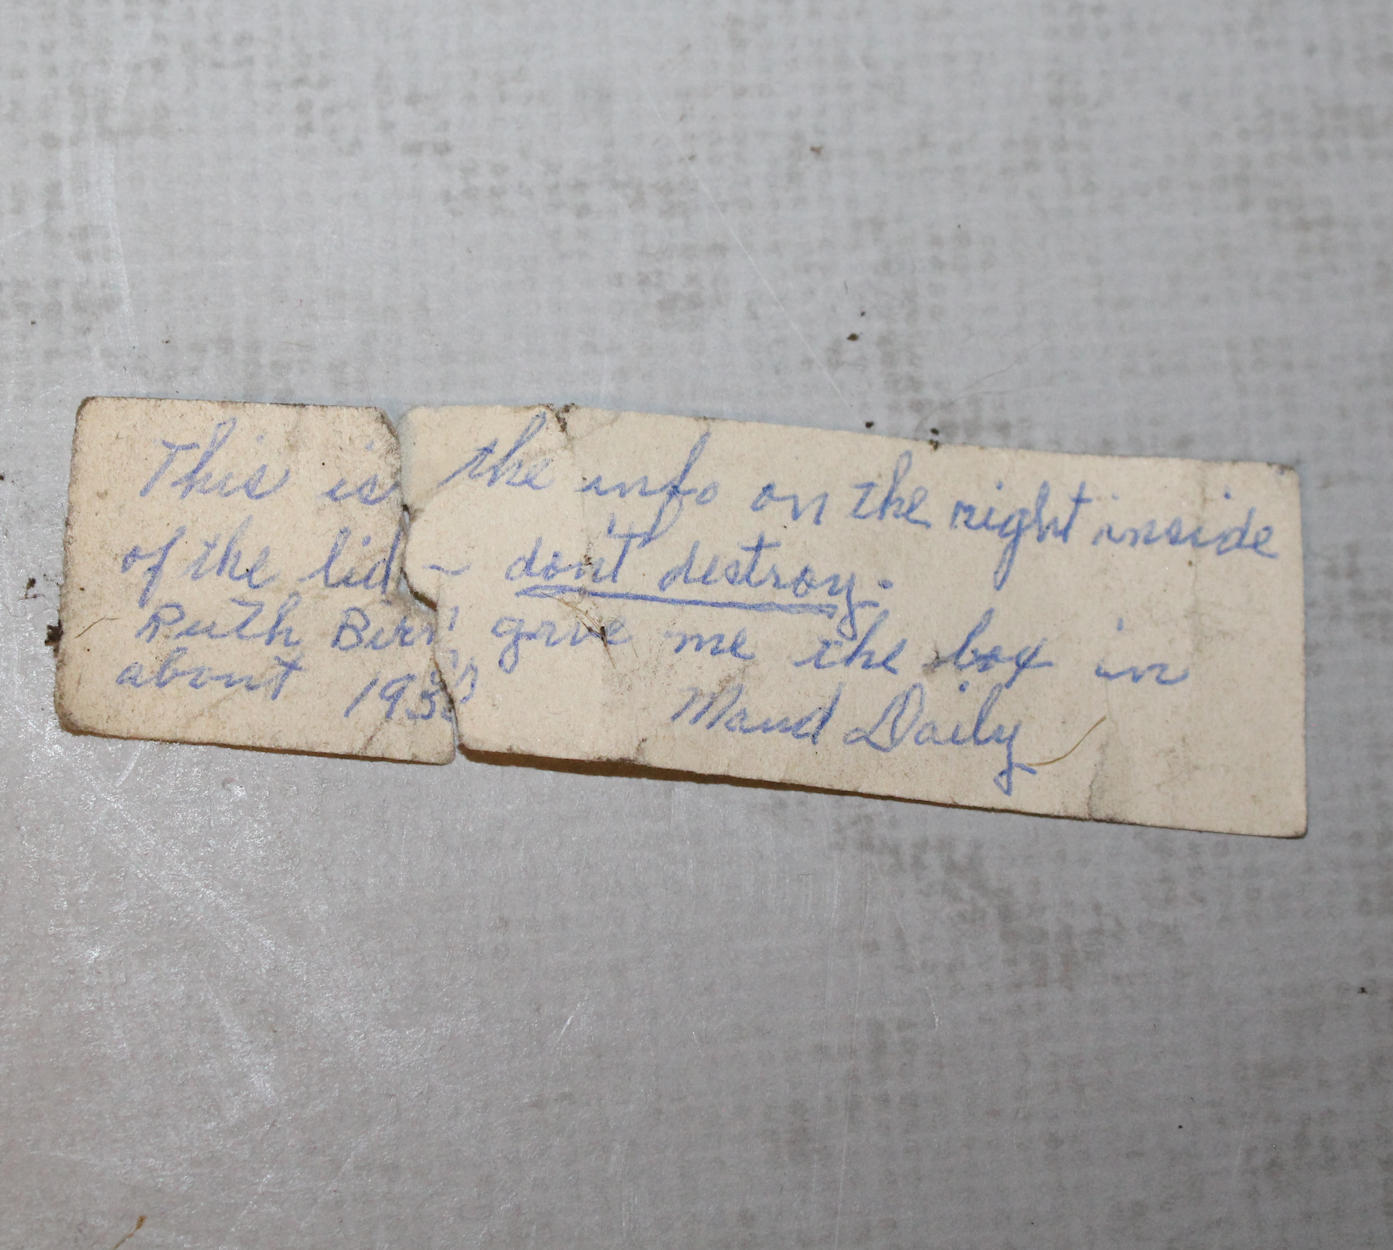 This is the info on the right inside
of the lid ~ don't destroy.
Ruth gave me the box in
about
Maud Daily